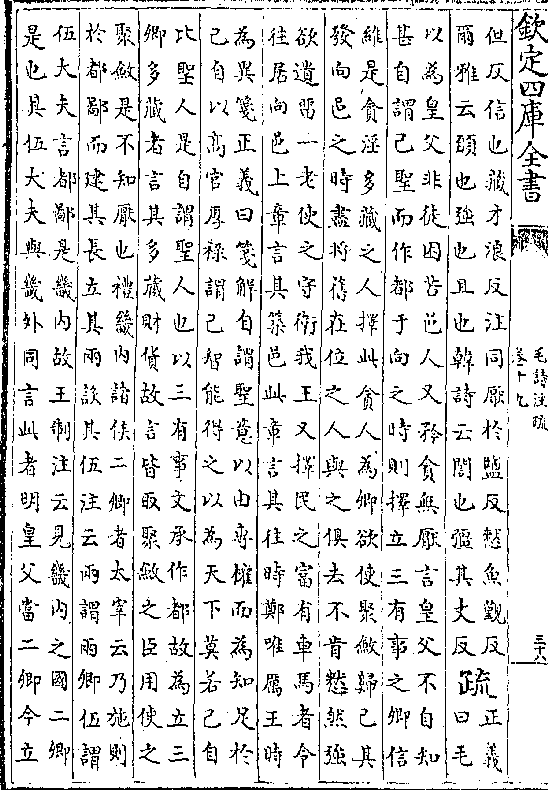 欽定四庫全書
毛詩注疏
卷十九
三十六
但反信也藏才浪反注同厭於鹽反憖魚覲反
爾雅云願也強也且也韓詩云誾也彊其丈反
疏
正義
曰毛
以為皇父非徒困苦邑人又矜貪無厭言皇父不自知
甚自謂己聖而作都于向之時則擇立三有事之卿信
維是貪淫多藏之人擇此貪人為卿欲使聚斂歸己其
發向邑之時盡將舊在位之人與之俱去不肯憖然強
欲遺留一老使之守衛我王又擇民之富有車馬者令
往居向邑上章言其築邑此章言其往時鄭唯應王時
為異箋正義曰箋解自謂聖意以由專權而為知足於
己自以高官厚祿謂己智能得之以為天下莫若己自
比聖人是自謂聖人也以三有事文承作都故為立三
卿多藏者言其多藏財貨故言皆取聚斂之臣用使之
聚斂是不知厭也禮畿內諸侯二卿者太宰云乃施則
於都鄙而建其長立其兩設其伍注云兩謂兩卿伍謂
伍大夫言都鄙是畿內故王制注云見畿內之國二卿
是也其伍大夫與畿外同言此者明皇父當二卿今立